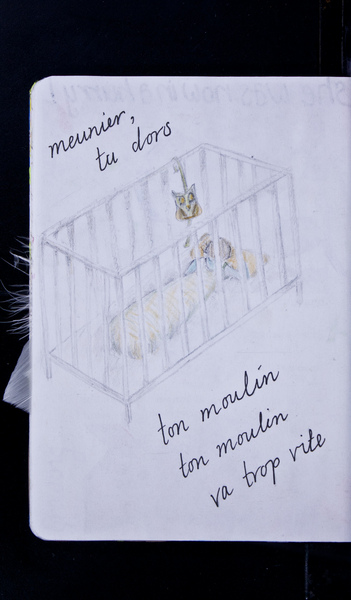 meunier,
tu dors
ton moulin
ton moulin
va trop vite